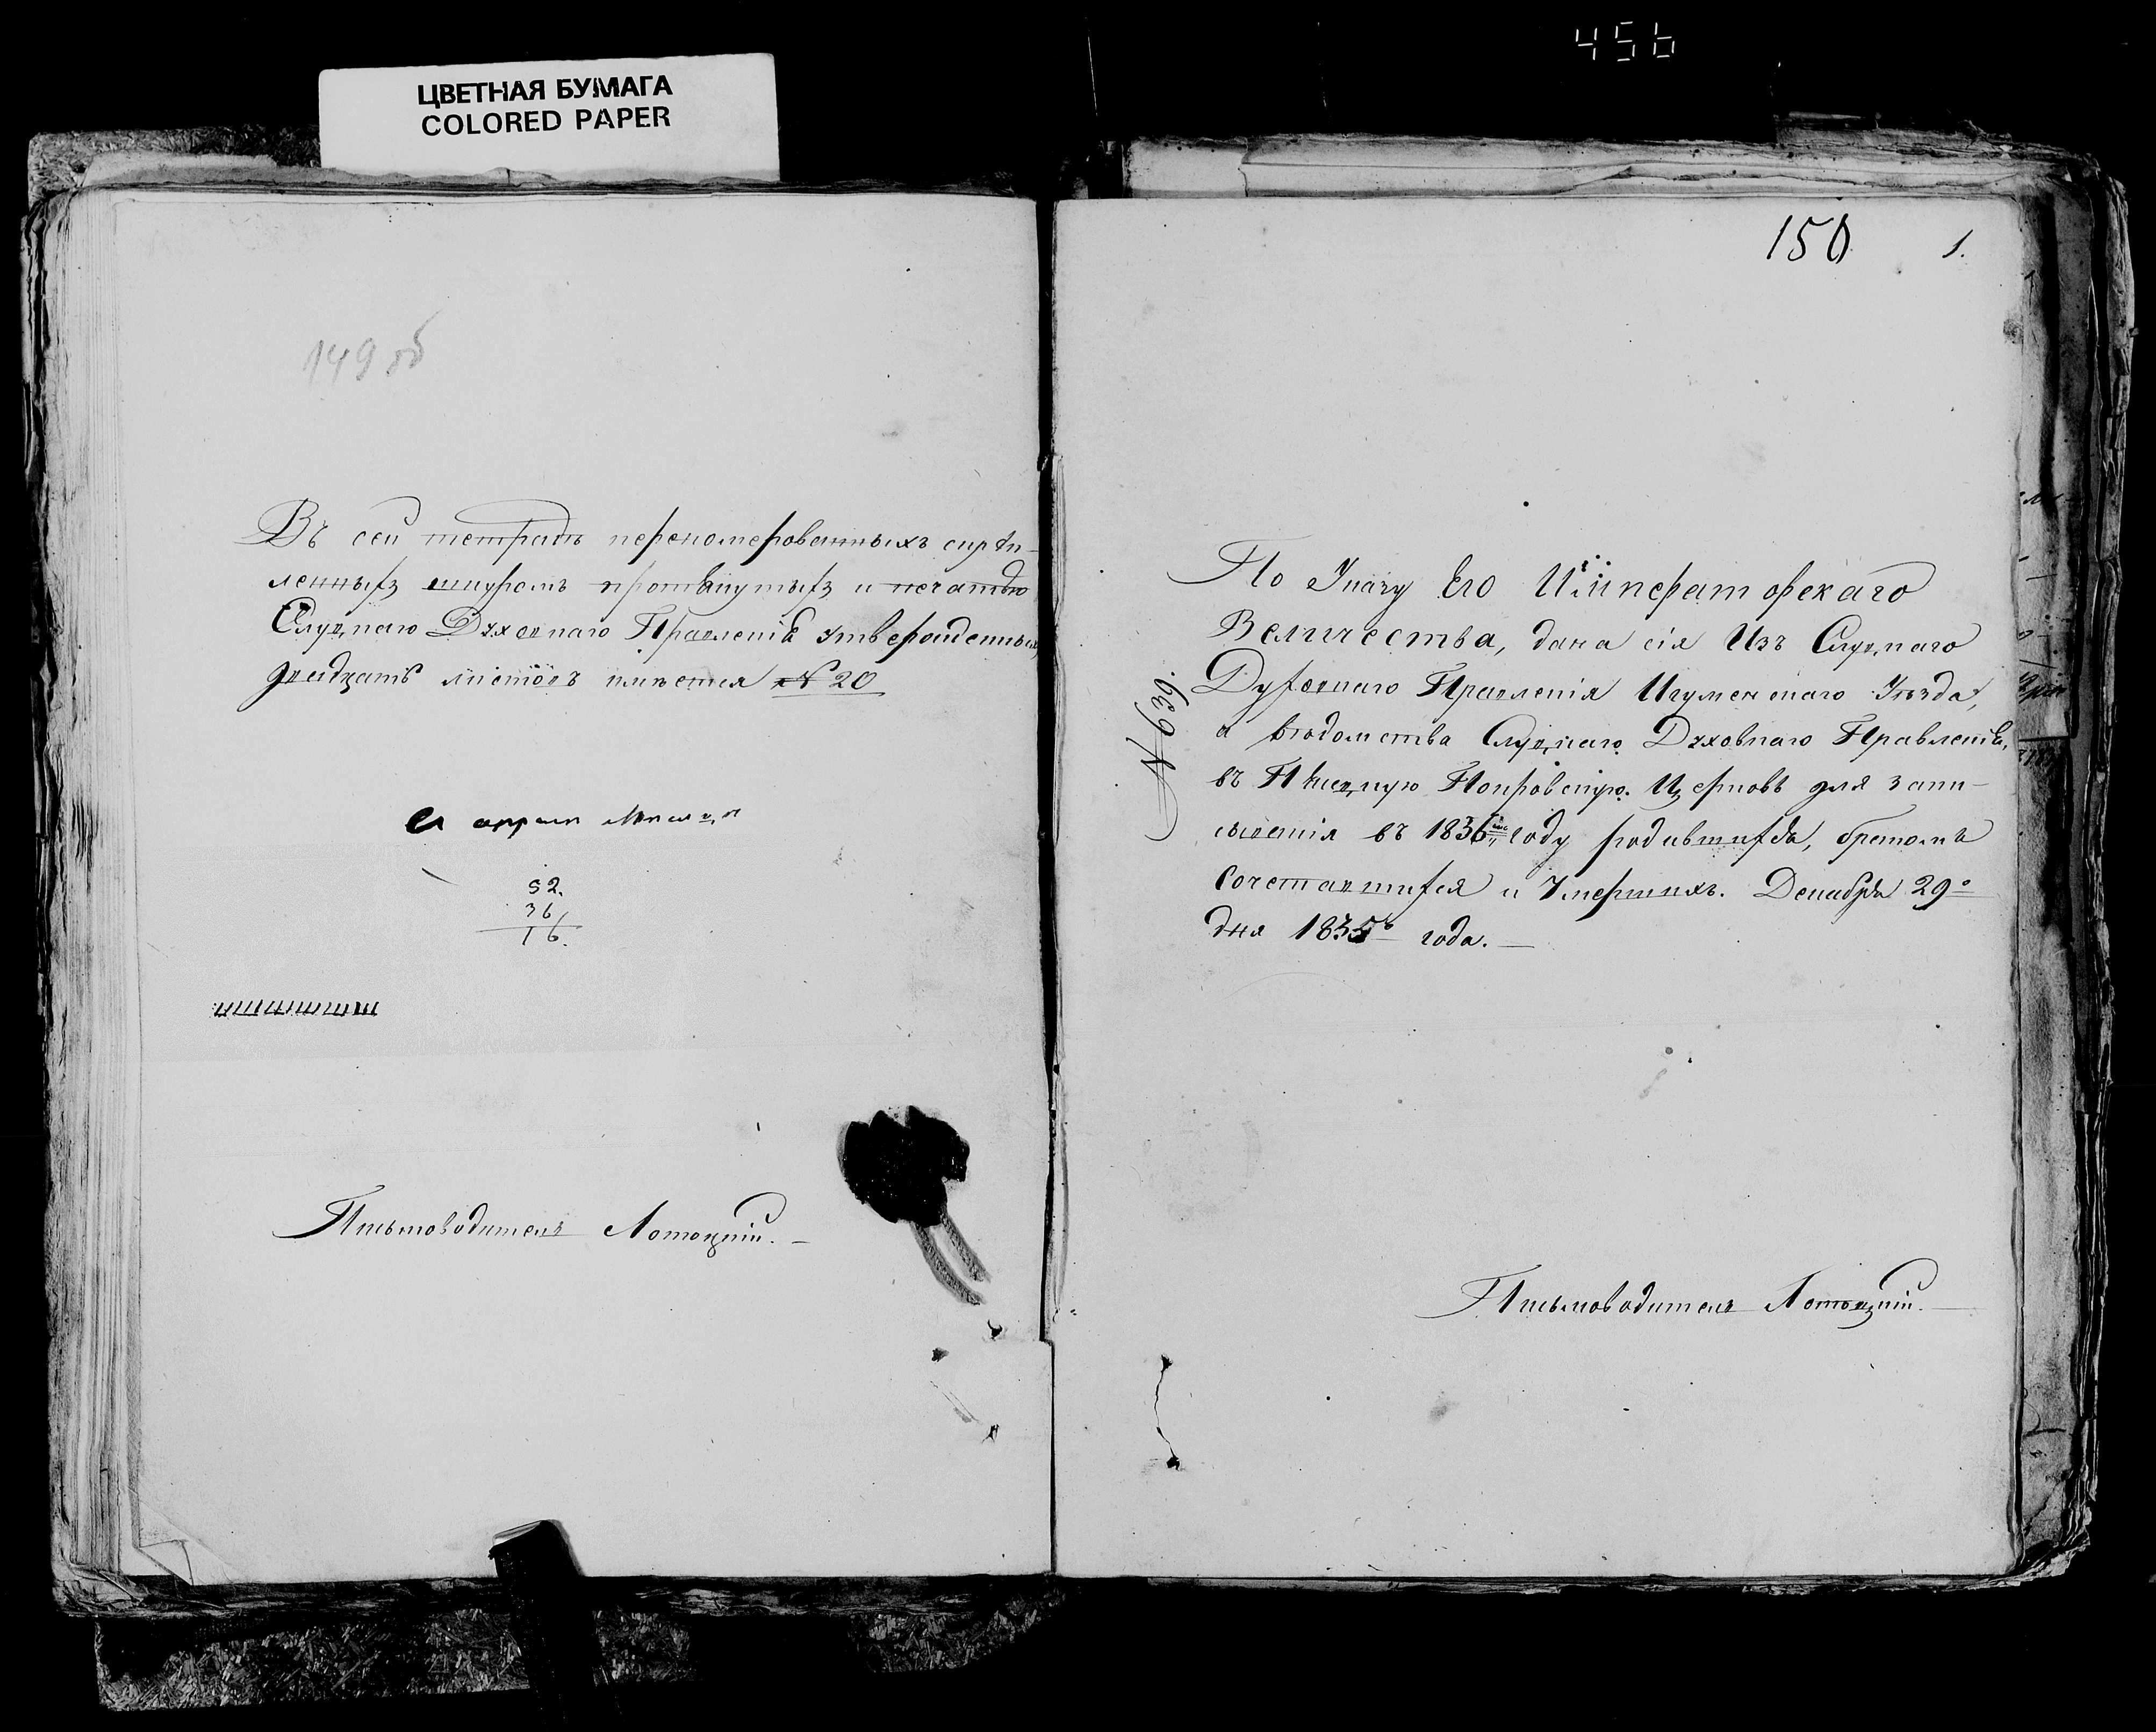 456
ЦВЕТНАЯ БУМАГА
COLORED PAPER
149 об
Въ сей тетради перекомерованныхъ скрѣп-
ленныхъ шнуромъ протянутыхъ и печатью
Слуцкаго Духовнаго Правленія утвержденныхъ
двадцать листовъ имѣется № 20
52.
36
16.
Письмоводитель Лотоцкій.
150 1.
По Указу Его Императорскаго
Величества, дана сія Изъ Слуцкаго
Духовнаго Правленія Игуменскаго Уѣзда,
а вѣдомства Слуцкаго Духовнаго Правленія,
въ Покровскую Церковь для запи-
сыванія въ 1836 году родившихся, бракомъ
Сочетавшихся и Умершихъ. Декабря 29
дня 1835 года.
№ 639.
Письмоводитель Лотоцкій.